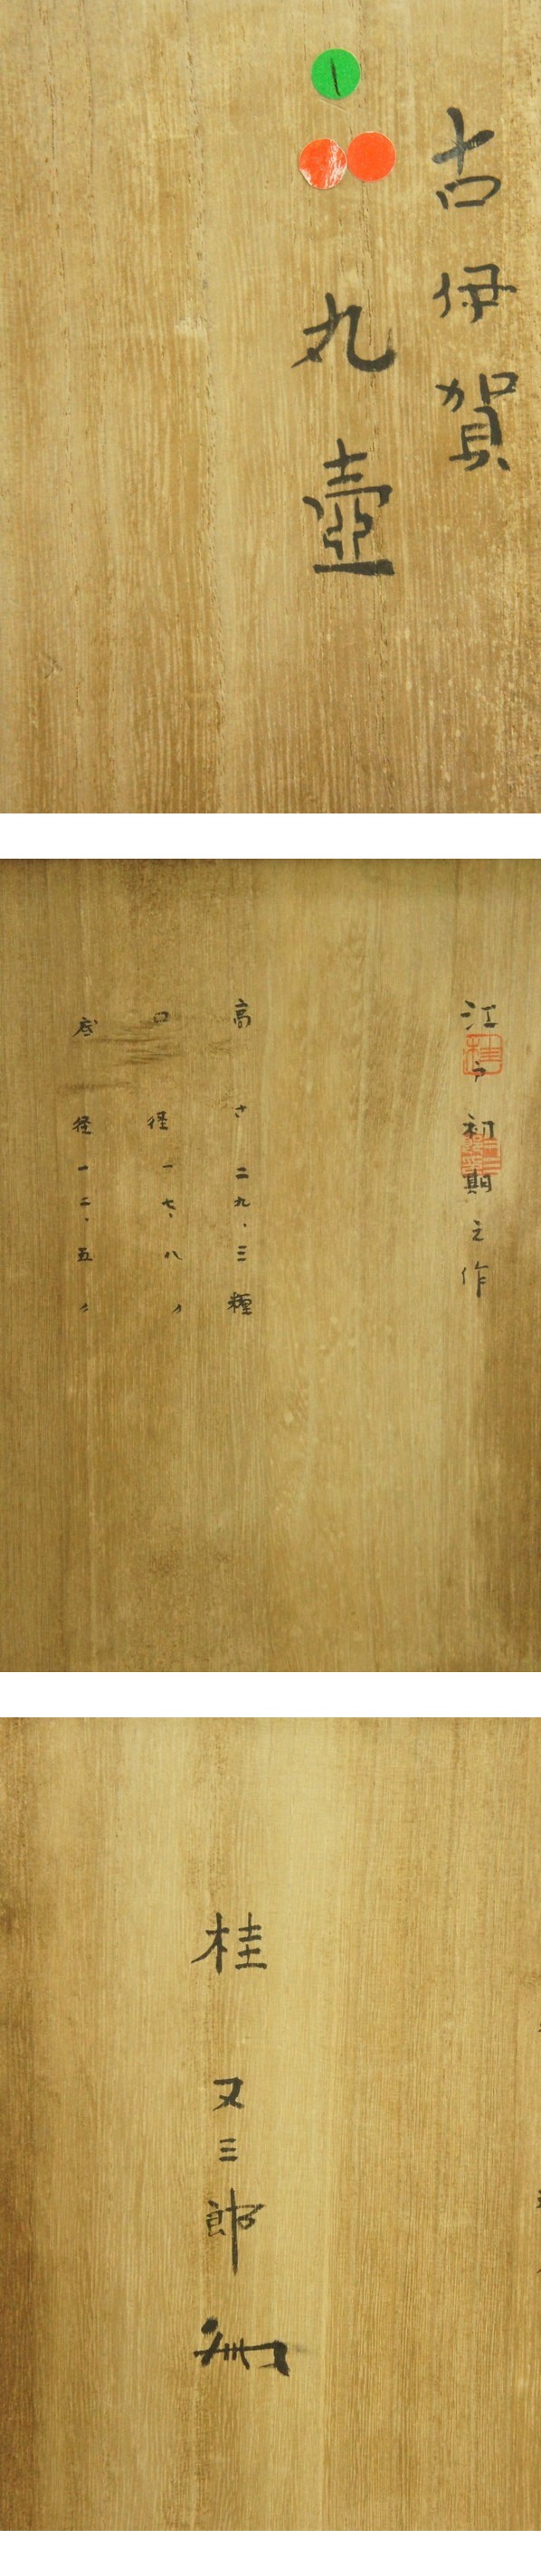 古伊賀
丸壺
江戸初期之作
高さ 二九.三糎
口径 一七.八 〃
底径 一二.五 〃
桂又三郎